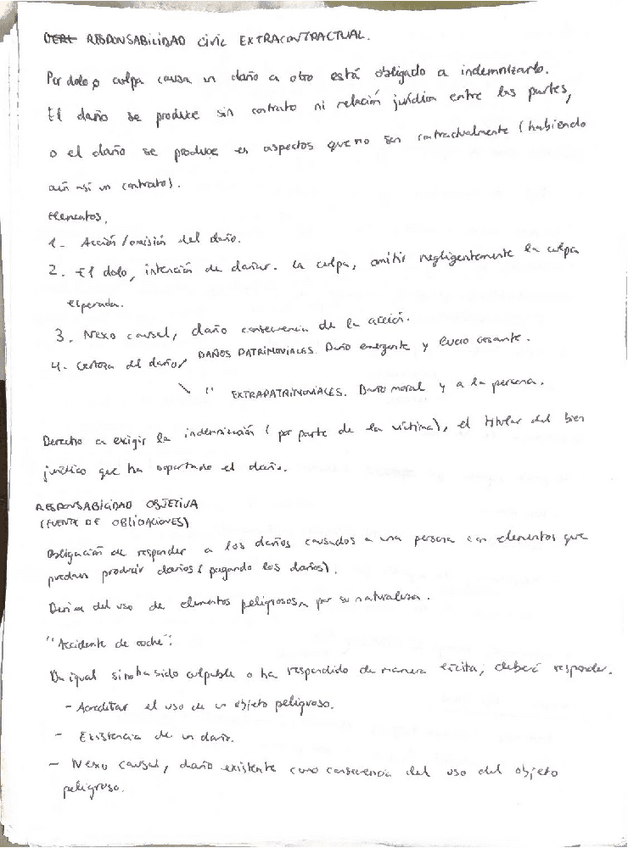 RESPONSABILIDAD CIVIL EXTRACONTRACTUAL.
Por dolo o culpa causa un daño a otro está obligado a indemnizarlo.
El daño se produce sin contrato ni relación jurídica entre las partes,
o el daño se produce en aspectos que no son contractualmente (habiendo
aún así un contrato).
Elementos.
1- Acción/omisión del daño.
2. El dolo, intención de dañar. La culpa, omitir negligentemente la culpa
esperada.
3. Nexo causal, daño consecuencia de la acción.
4- Certeza del daño/ DAÑOS PATRIMONIALES. Daño emergente y lucro cesante.
\ " EXTRAPATRIMONIALES. Daño moral y a la persona.
Derecho a exigir la indemnización (por parte de la víctima), el titular del bien
jurídico que ha soportado el daño.
RESPONSABILIDAD OBJETIVA
(FUENTE DE OBLIGACIONES)
Obligación de responder a los daños causados a una persona con elementos que
puedan producir daños (pagando los daños).
Deriva del uso de elementos peligrosos por su naturaleza.
"Accidente de coche".
Da igual si no ha sido culpable o ha respondido de manera ilícita, deberá responder.
- Acreditar el uso de un objeto peligroso.
- Existencia de un daño.
- Nexo causal, daño existente como consecuencia del uso del objeto
peligroso.